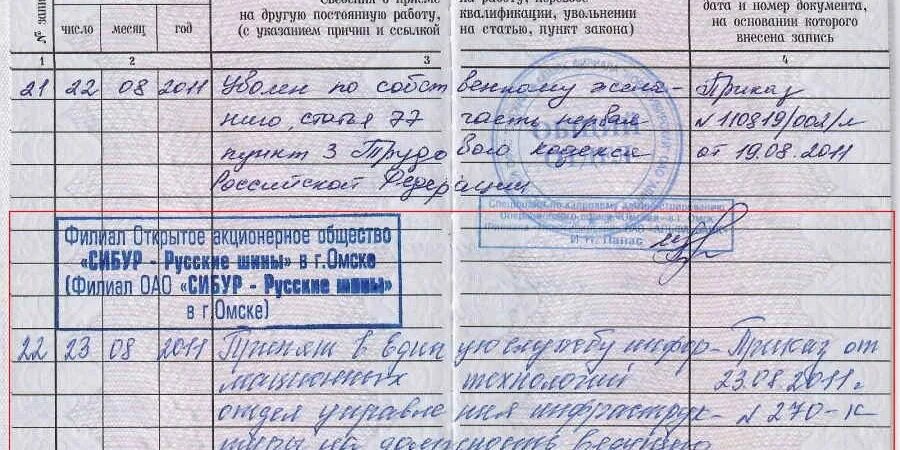 Сведения о приеме на работу, переводе
на другую постоянную работу, квалификации, увольнении
(с указанием причин и ссылкой на статью, пункт закона)
дата и номер документа,
на основании которого
внесена запись
№ запи
число месяц год
1 2 3 4
21 22 08 2011 Уволен по собственному жела- Приказ
нию, статья 77 часть первая N 110819/002/л
пункт 3 Трудового кодекса от 19.08.2011
Российской Федерации
ОБЩИЙ
ОТДЕЛ
Специалист по кадровому администрированию
И.П. Панас
Филиал Открытое акционерное общество
«СИБУР - Русские шины» в г.Омске
(Филиал ОАО «СИБУР - Русские шины»
в г.Омске)
22 23 08 2011 Принят в Единую службу инфор- Приказ от
мационных технологий 23.08.2011г
отдел управления инфраструк- N 270-к
туры на должность